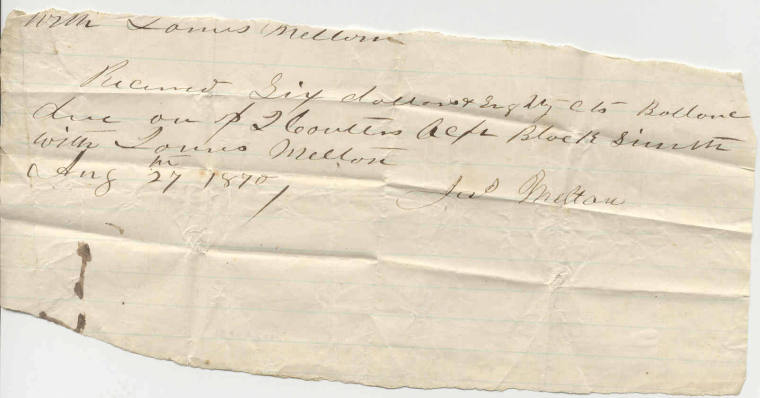 with Louis Melton
Received Six dollars & Eighty cts Ballance
due on J Coulters Acct Black Smith
with Louis Melton
Aug 27th 1870
Jas Melton